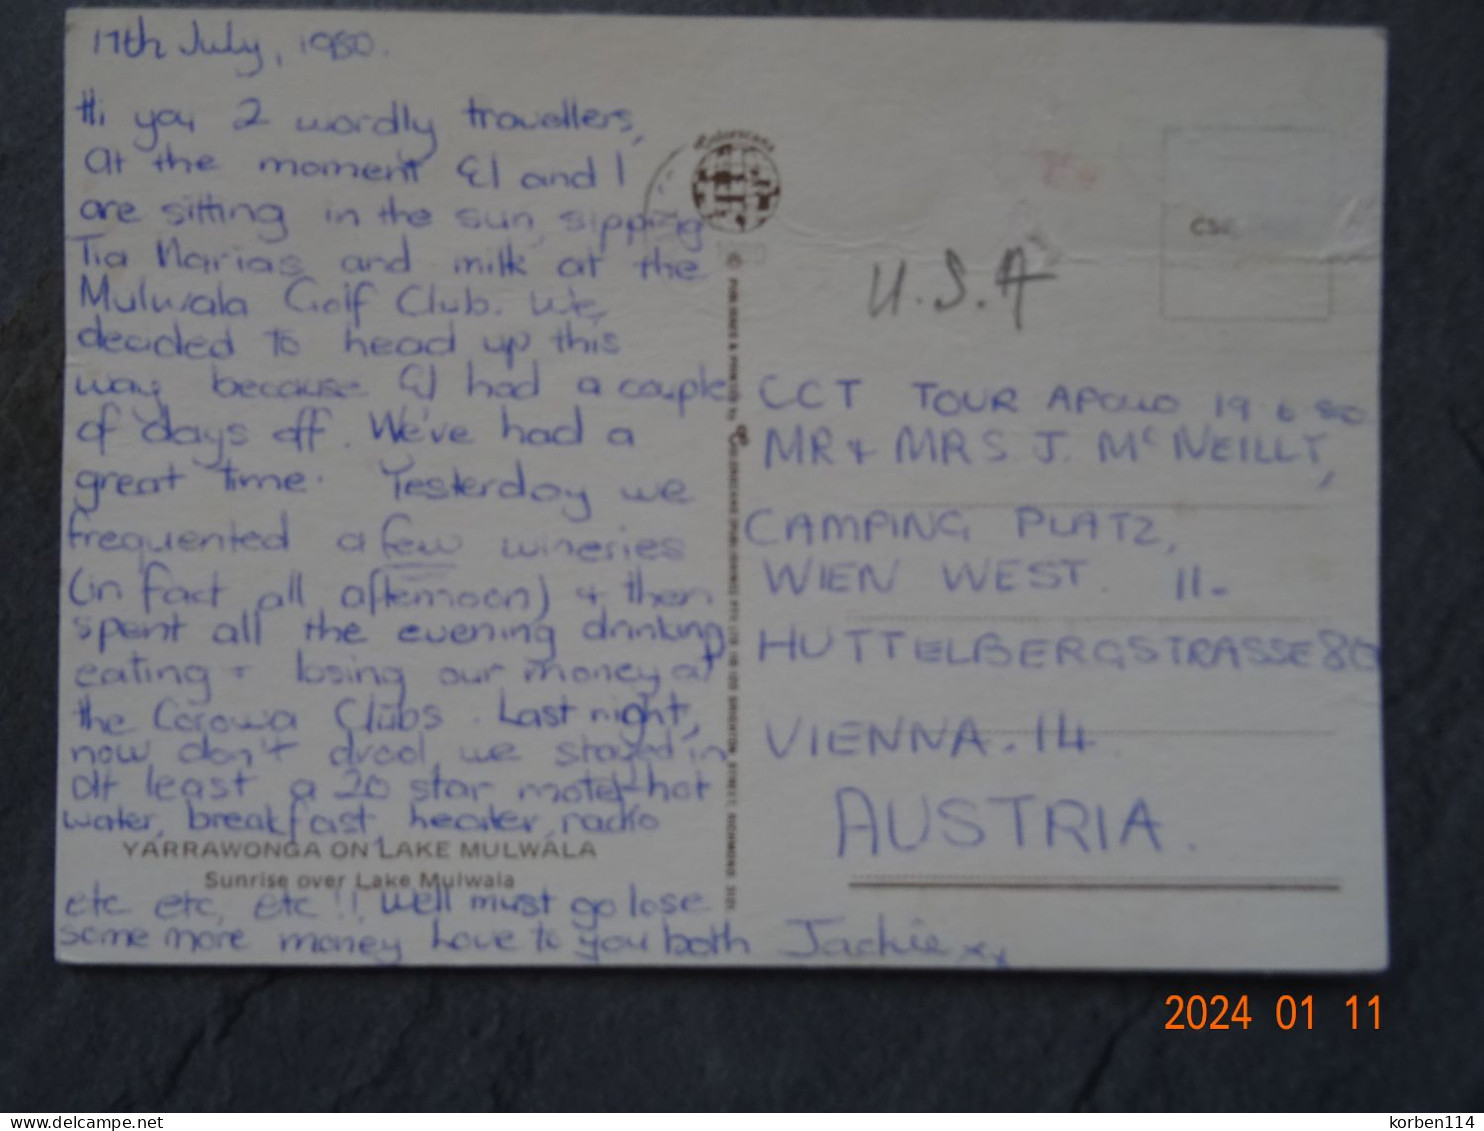 17th July, 1980.
Hi you 2 wordly travellers,
At the moment El and I
are sitting in the sun, sipping
Tia Marias and milk at the
Mulwala Golf Club. We
decided to head up this
way because El had a couple
of days off. We've had a
great time. Yesterday we
frequented a few wineries
(in fact all afternoon) + then
spent all the evening drinking
eating + losing our money at
the Corowa Clubs. Last night,
now don't drool, we stayed in
at least a 20 star motel-hot
water, breakfast, heater, radio
YARRAWONGA ON LAKE MULWALA
Sunrise over Lake Mulwala
etc etc, etc!! Well must go lose
some more money Love to you both Jackie xx
U.S.A
CCT TOUR APOLLO 19 6 80
MR + MRS J. McNEILLY,
CAMPING PLATZ,
WIEN WEST. 11-
HUTTELBERGSTRASSE 80
VIENNA. 14
AUSTRIA.
2024 01 11
delcampe.net
korben114